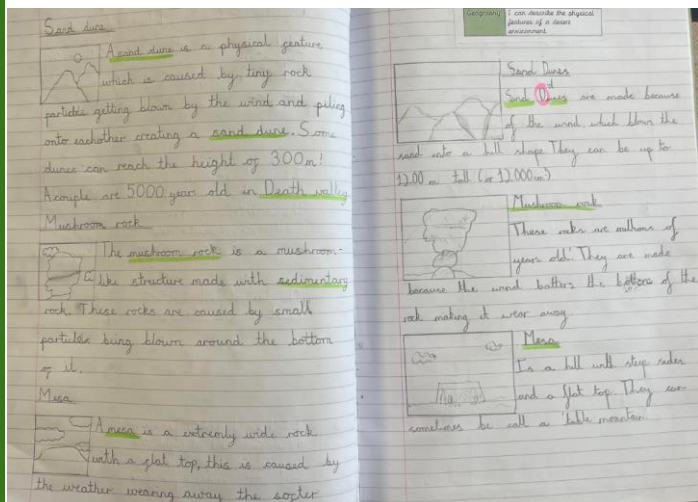 Sand dune
A sand dune is a physical feature
which is caused by tiny rock
particles getting blown by the wind and piling
onto eachother creating a sand dune. Some
dunes can reach the height of 300m!
A couple are 5000 years old in Death valley
Mushroom rock
The mushroom rock is a mushroom-
like structure made with sedimentary
rock. These rocks are caused by small
particles being blown around the bottom
of it.
Mesa
A mesa is a extremly wide rock
with a flat top, this is caused by
the weather wearing away the softer
Geography
I can describe the physical
features of a desert
environment
Sand Dunes
d
Sand Dunes are made because
of the wind which blows the
sand into a hill shape They can be up to
1200 m tall (or 12,000cm)
Mushroom rock
These rocks are millions of
years old! They are made
because the wind batters the bottom of the
rock making it wear away
Mesa
Is a hill with steep sides
and a flat top. They can
sometimes be call a table mountain.